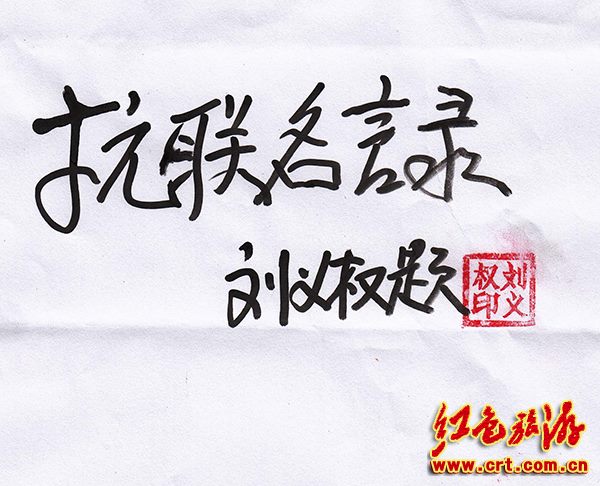 抗联名言录
刘义权题
刘义权印
红色旅游
www.crt.com.cn